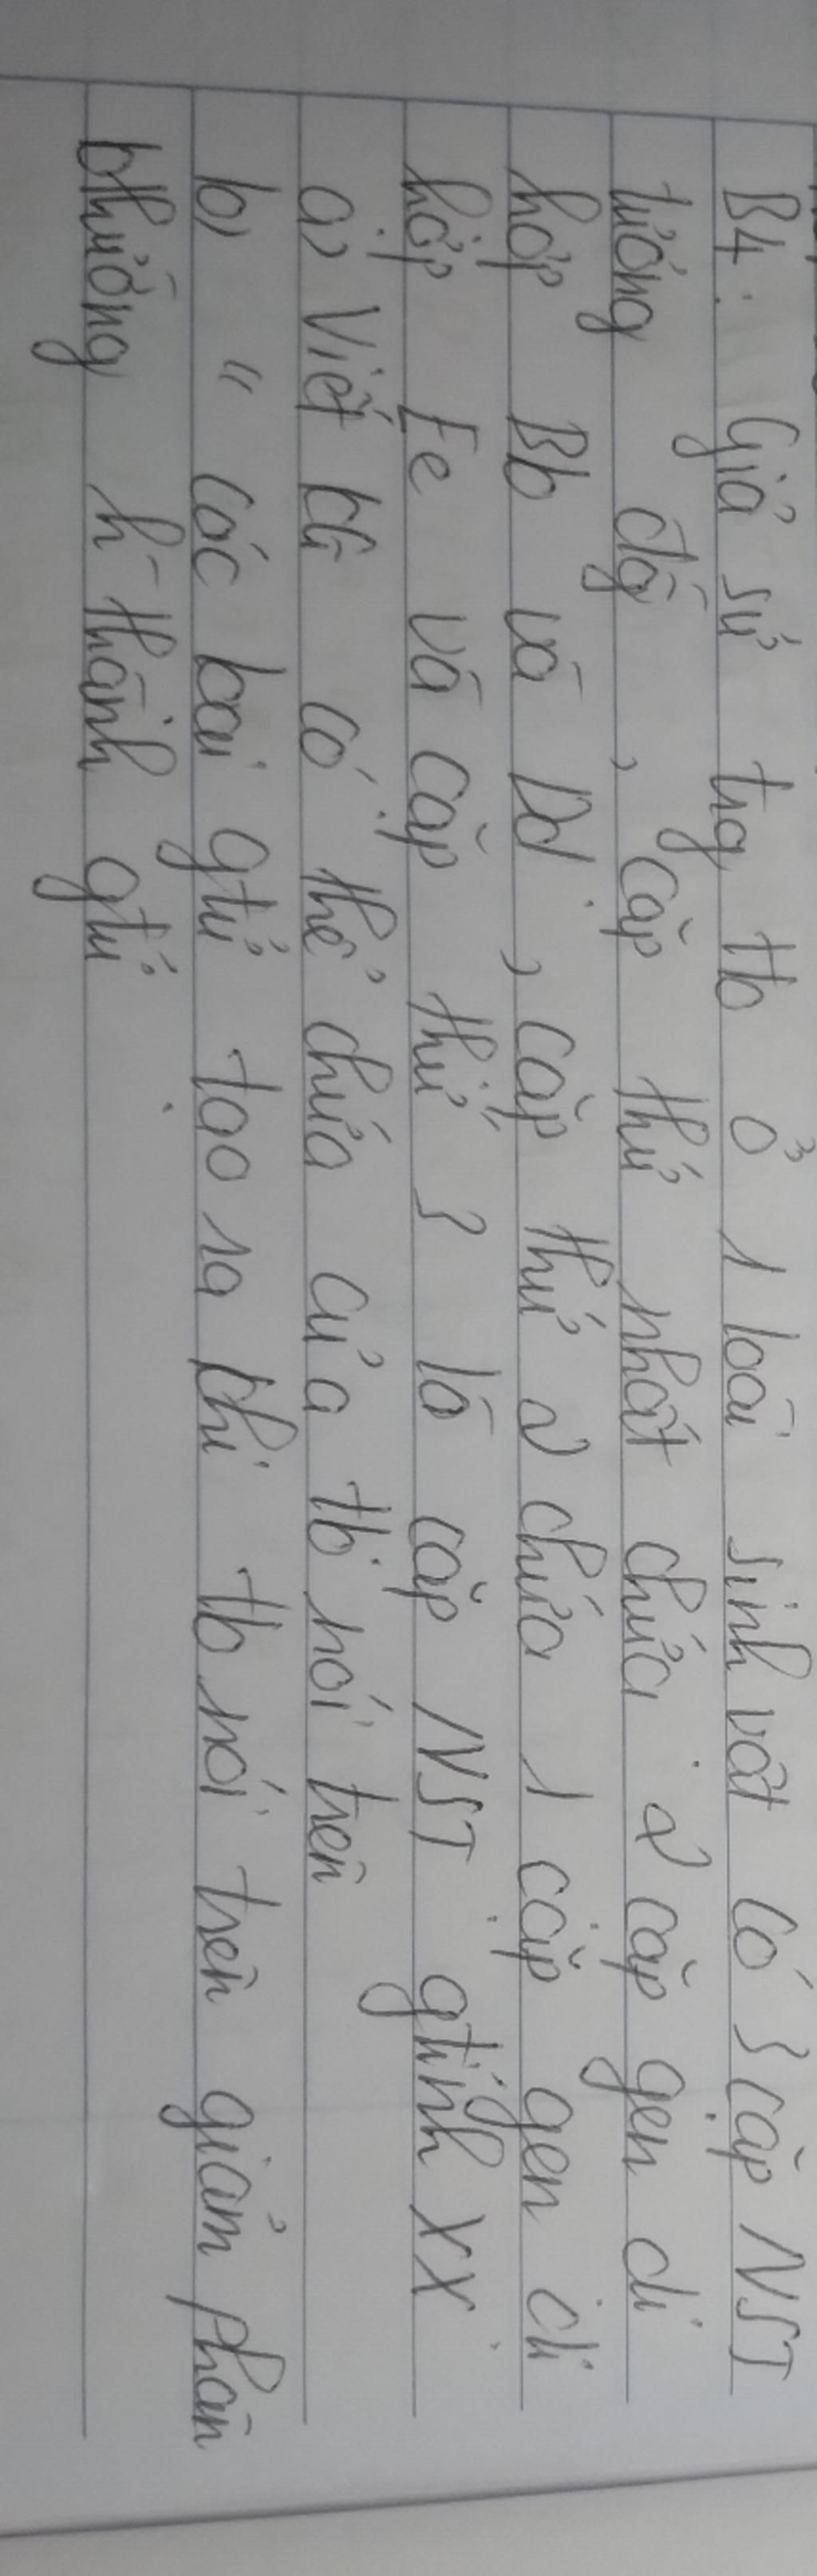 B4. Giả sử trg tb ở 1 loài sinh vật có 3 cặp NST
tương đồg, cặp thứ nhất chứa 2 cặp gen dị
hợp Bb và Dd, cặp thứ 2 chứa 1 cặp gen dị
hợp Ee và cặp thứ 3 là cặp NST gtính XX
a) Viết KG có thể chứa của tb nói trên
b) " các loại gtử tạo ra khi tb nói trên giảm phân
bthường h-thành gtử